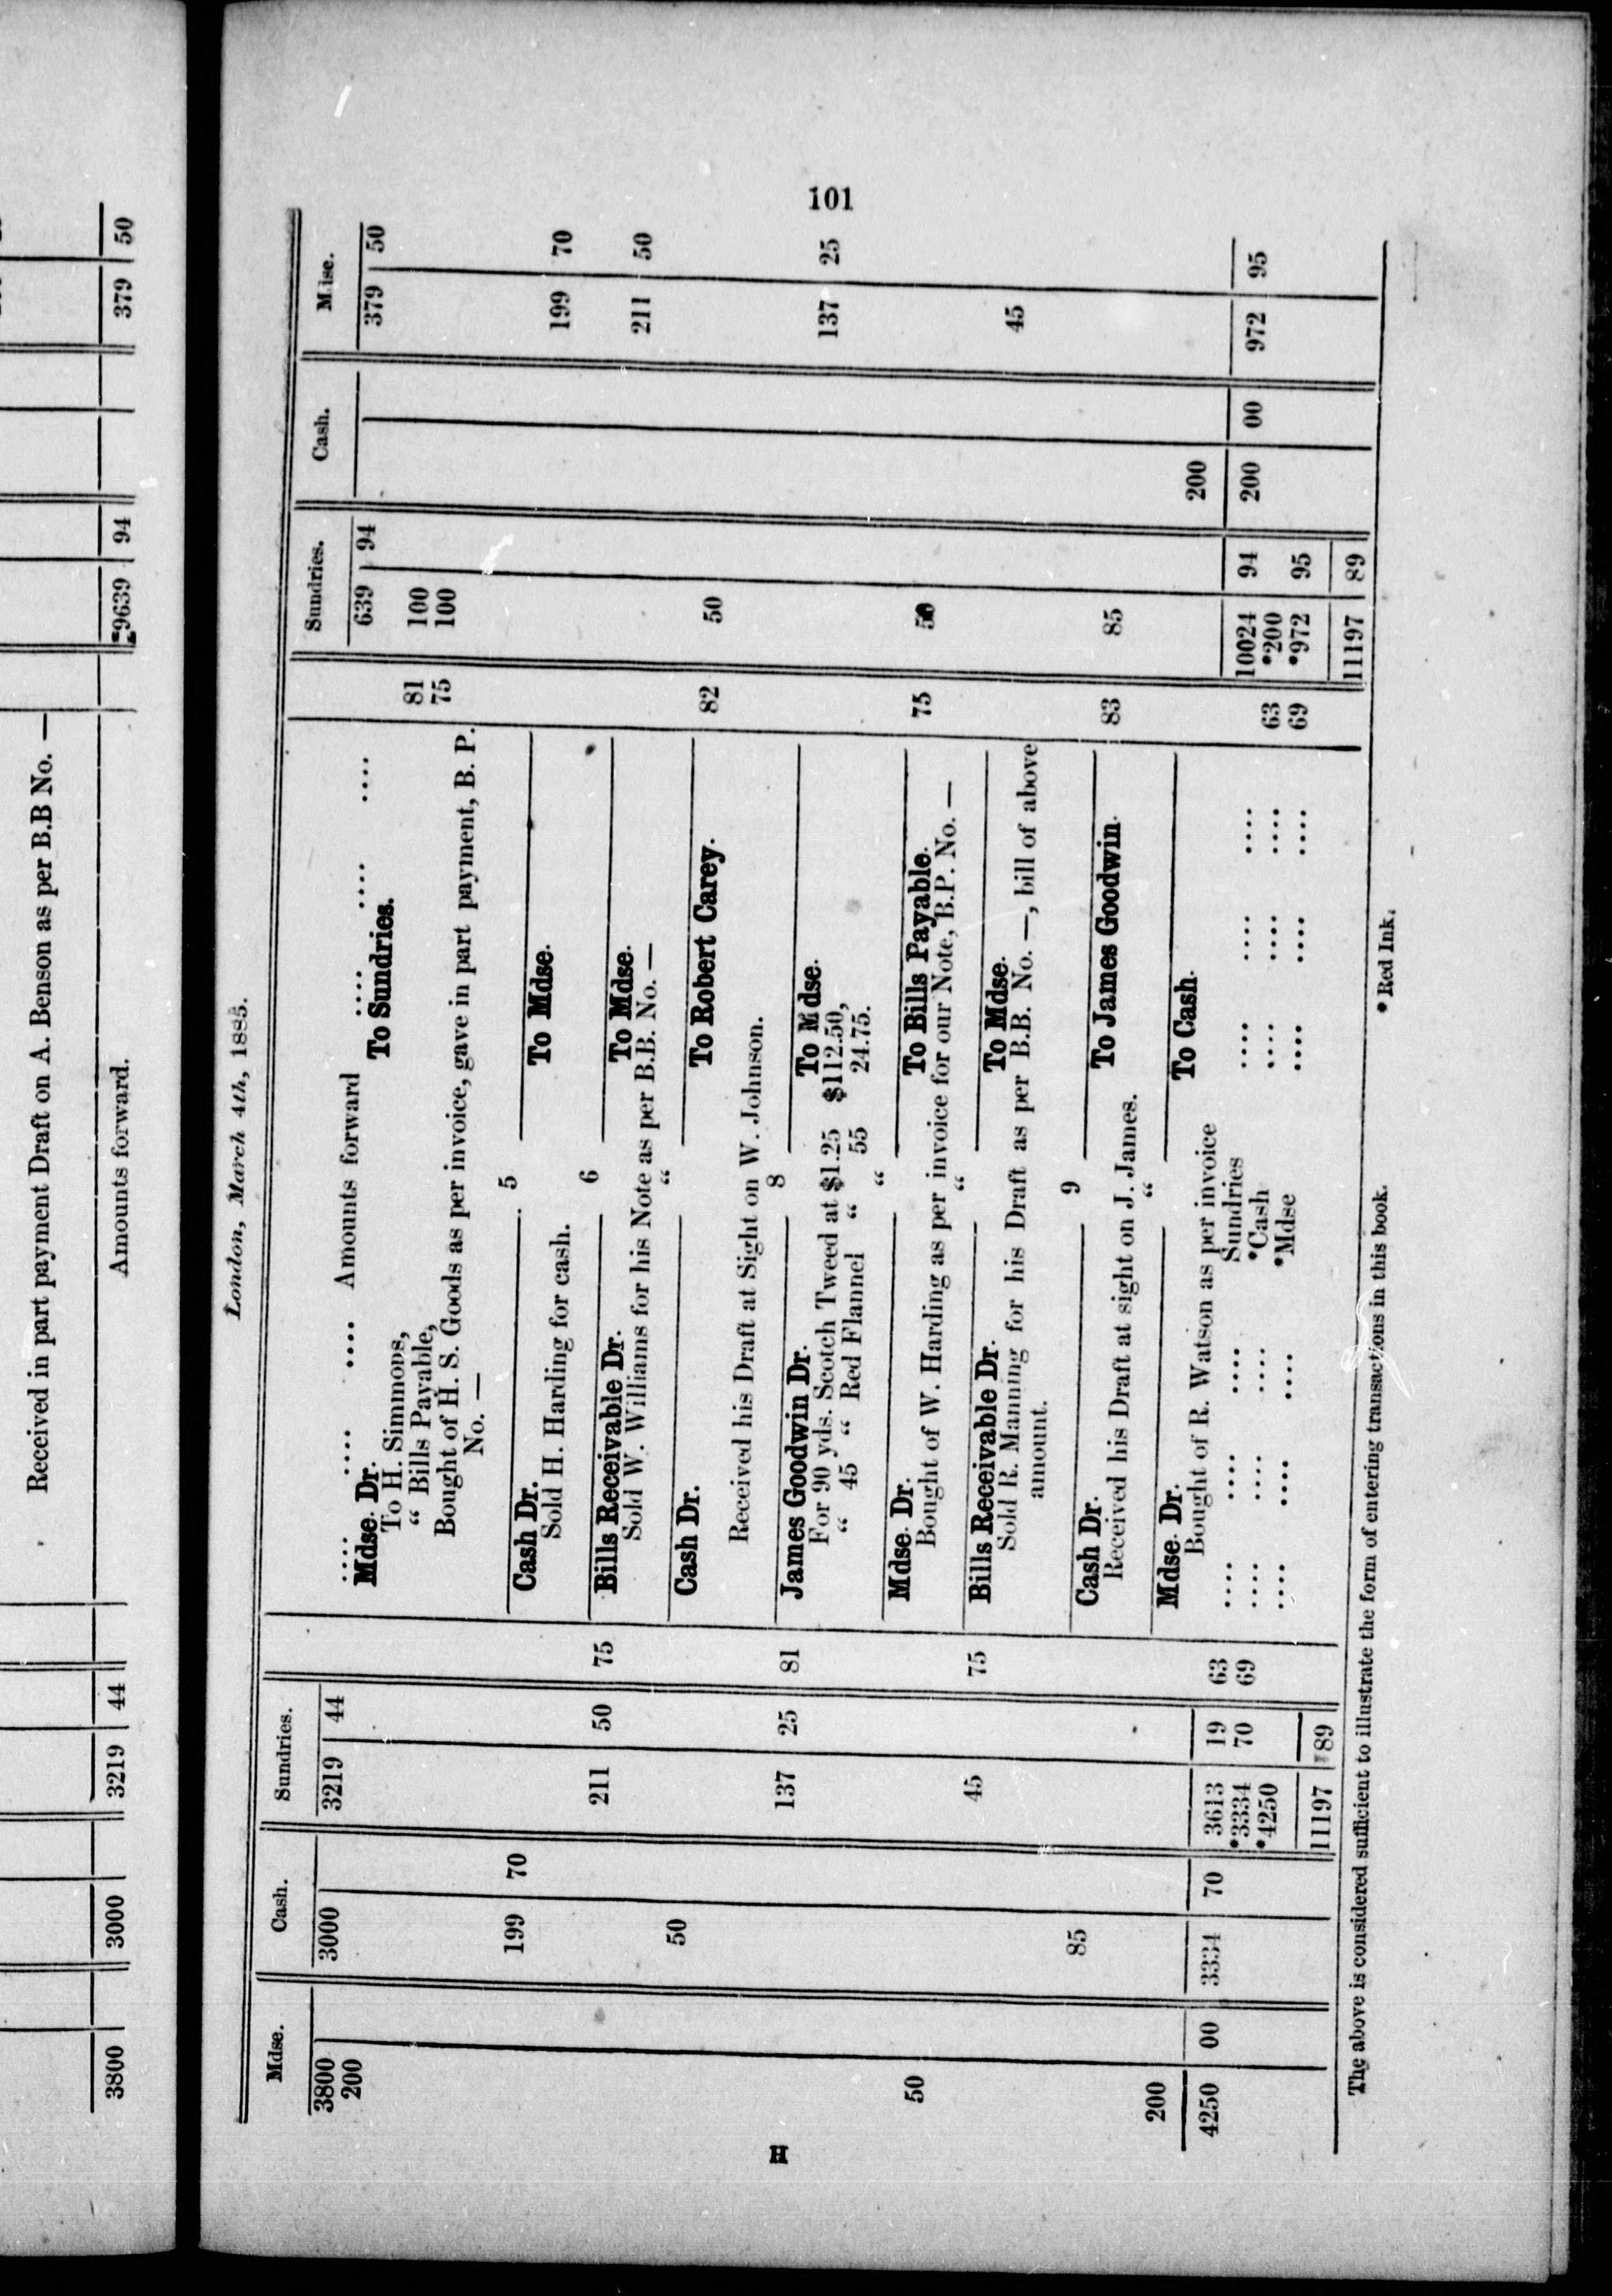 Received in part payment Draft on A. Benson as per B.B No. —
3800 3000 3219 44 Amounts forward. 9639 94 379 50
101
London, March 4th, 1885.
Mdse. Cash. Sundries. Sundries. Cash. Mdse.
3800 3000 3219 44 .... .... .... Amounts forward .... .... .... 639 94 379 50
200 Mdse. Dr. To Sundries.
To H. Simmons, 81 100
“ Bills Payable, 75 100
Bought of H. S. Goods as per invoice, gave in part payment, B. P.
No. —
5
199 70 Cash Dr. To Mdse. 199 70
Sold H. Harding for cash.
6
211 50 75 Bills Receivable Dr. To Mdse. 211 50
Sold W. Williams for his Note as per B.B. No. —
“
50 Cash Dr. To Robert Carey. 82 50
Received his Draft at Sight on W. Johnson.
8
137 25 81 James Goodwin Dr. To Mdse. 137 25
For 90 yds. Scotch Tweed at $1.25 $112.50,
“ 45 “ Red Flannel “ 55 24.75.
“
50 Mdse. Dr. To Bills Payable. 75 50
Bought of W. Harding as per invoice for our Note, B.P. No. —
“
45 75 Bills Receivable Dr. To Mdse. 45
Sold R. Manning for his Draft as per B.B. No. —, bill of above
amount.
9
85 Cash Dr. To James Goodwin. 83 85
Received his Draft at sight on J. James.
“
200 Mdse. Dr. To Cash. 200
Bought of R. Watson as per invoice
4250 00 3334 70 3613 19 63 .... .... .... Sundries .... .... .... 10024 94 200 00 972 95
*3334 70 69 .... .... .... *Cash .... .... .... 63 *200
*4250 .... .... .... *Mdse .... .... .... 69 *972 95
11197 89 11197 89
The above is considered sufficient to illustrate the form of entering transactions in this book. * Red Ink.
H